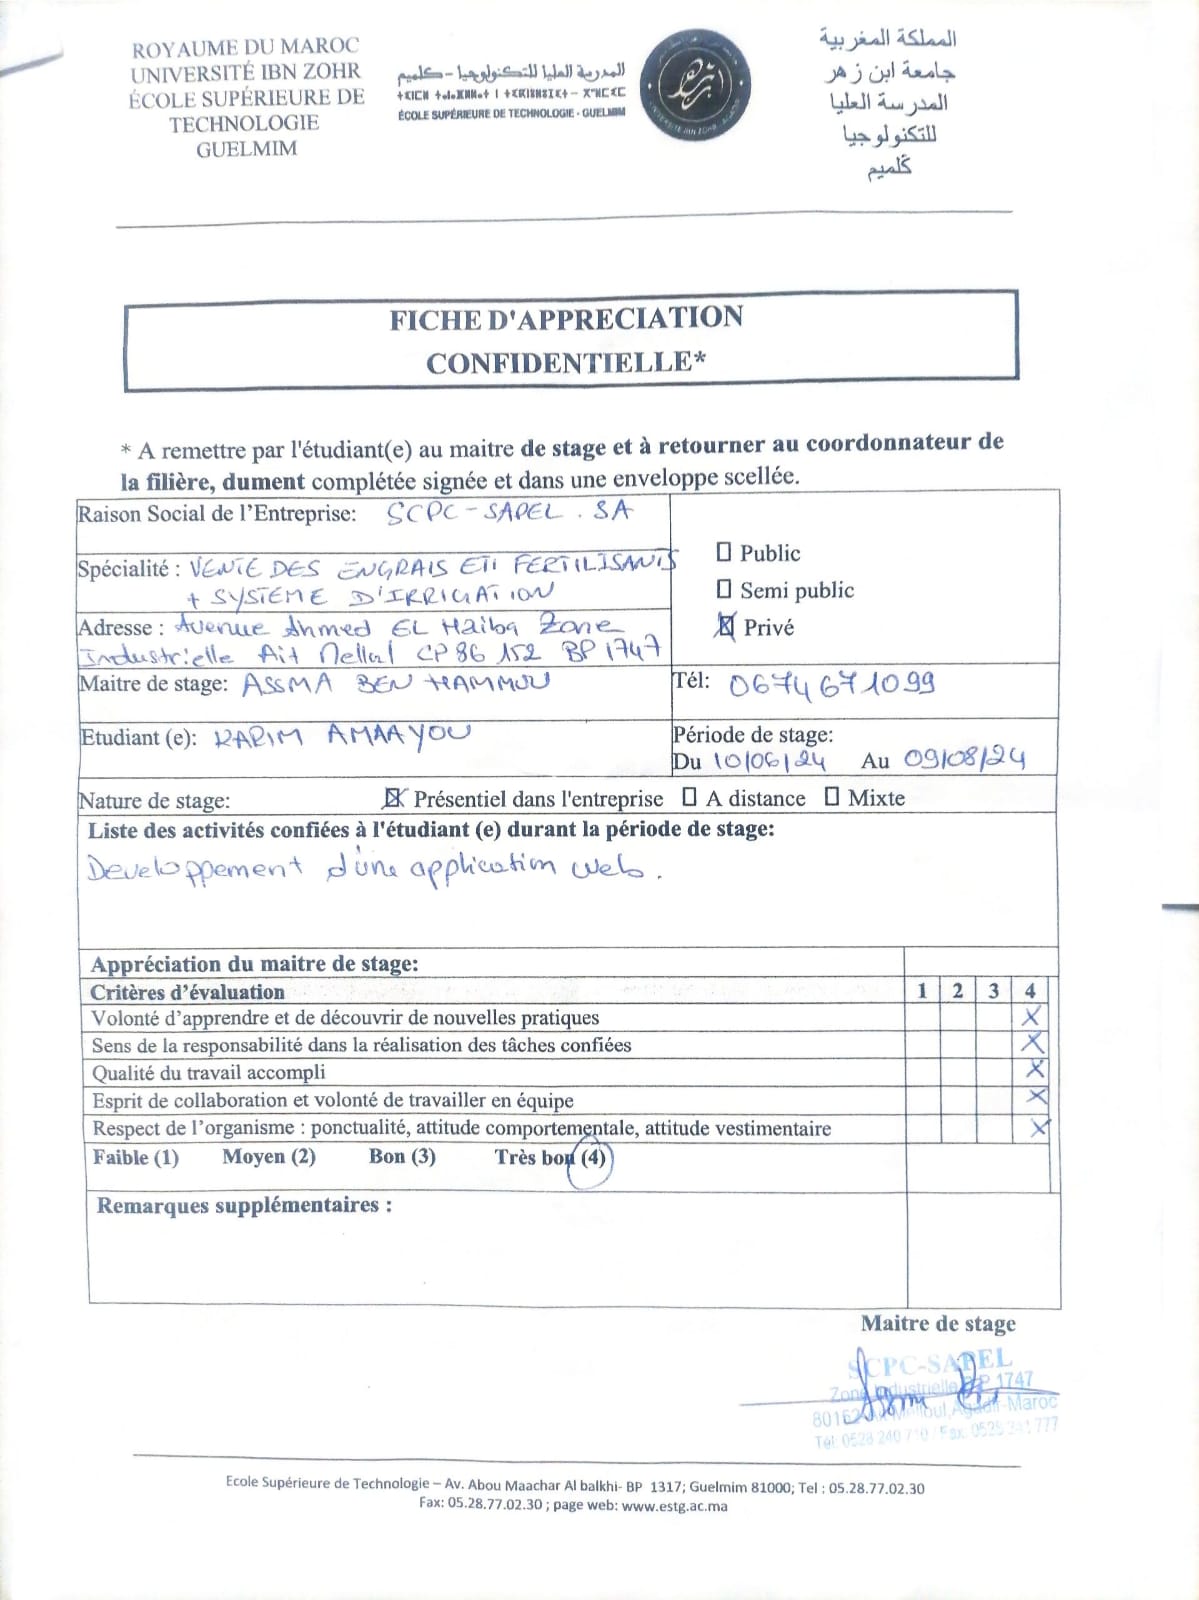 ROYAUME DU MAROC
UNIVERSITÉ IBN ZOHR
ÉCOLE SUPÉRIEURE DE
TECHNOLOGIE
GUELMIM
المدرسة العليا للتكنولوجيا - كلميم
ÉCOLE SUPÉRIEURE DE TECHNOLOGIE - GUELMIM
المملكة المغربية
جامعة ابن زهر
المدرسة العليا
للتكنولوجيا
كلميم
FICHE D'APPRECIATION
CONFIDENTIELLE*
* A remettre par l'étudiant(e) au maitre de stage et à retourner au coordonnateur de
la filière, dument complétée signée et dans une enveloppe scellée.
Raison Social de l'Entreprise: SCPC-SAPEL.SA
Spécialité : VENTE DES ENGRAIS ET FERTILISANTS
+ SYSTEME D'IRRIGATION
Public
Semi public
Privé
Adresse : Avenue Ahmed EL Haiba Zone
Industrielle Ait Mellal CP 86 152 BP 1747
Maitre de stage: ASSMA BEN HAMMOU
Tél: 0674671099
Etudiant (e): KARIM AMAAYOU
Période de stage:
Du 10/06/24 Au 09/08/24
Nature de stage: Présentiel dans l'entreprise A distance Mixte
Liste des activités confiées à l'étudiant (e) durant la période de stage:
Developpement d'une application web.
Appréciation du maitre de stage:
Critères d'évaluation 1 2 3 4
Volonté d'apprendre et de découvrir de nouvelles pratiques X
Sens de la responsabilité dans la réalisation des tâches confiées X
Qualité du travail accompli X
Esprit de collaboration et volonté de travailler en équipe X
Respect de l'organisme : ponctualité, attitude comportementale, attitude vestimentaire X
Faible (1) Moyen (2) Bon (3) Très bon (4)
Remarques supplémentaires :
Maitre de stage
SCPC-SAPEL
Zone Industrielle B.P 1747
Agadir-Maroc
Tél: 0528 240 710 / Fax: 0528 241 777
Ecole Supérieure de Technologie – Av. Abou Maachar Al balkhi- BP 1317; Guelmim 81000; Tel : 05.28.77.02.30
Fax: 05.28.77.02.30 ; page web: www.estg.ac.ma